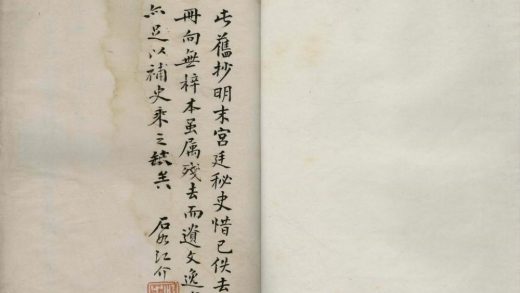 此舊抄明末宮廷秘史惜已佚去
冊向無梓本虽属殘去而遺文逸
亦足以補史乘之缺矣
石 江介